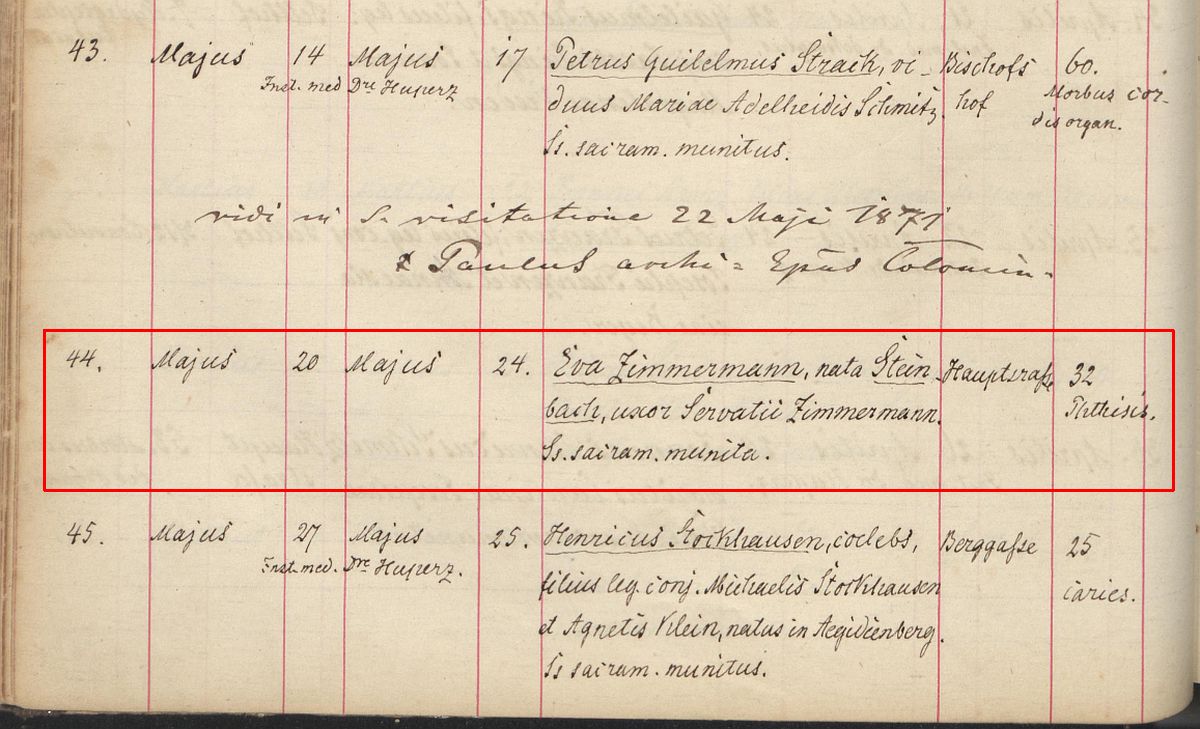 43. Majus 14 Majus 17 Petrus Guilelmus Strack, vi- Bischofs 60.
Inst. med Dre Huperz duus Mariae Adelheidis Schmitz. hof Morbus cor-
Ss. sacram. munitus. dis organ.
vidi in S. visitatione 22 Maji 1871
Paulus archi= Epus Colonien-
44. Majus 20 Majus 24. Eva Zimmermann, nata Stein- Hauptsraße 32
bach, uxor Servatii Zimmermann. Phthisis.
Ss. sacram. munita.
45. Majus 27 Majus 25. Henricus Stockhausen, coelebs, Berggaße 25
Inst. med. Dre Huperz. filius leg. conj. Michaelis Stockhausen caries.
et Agnetis Klein, natus in Aegidienberg.
Ss sacram. munitus.